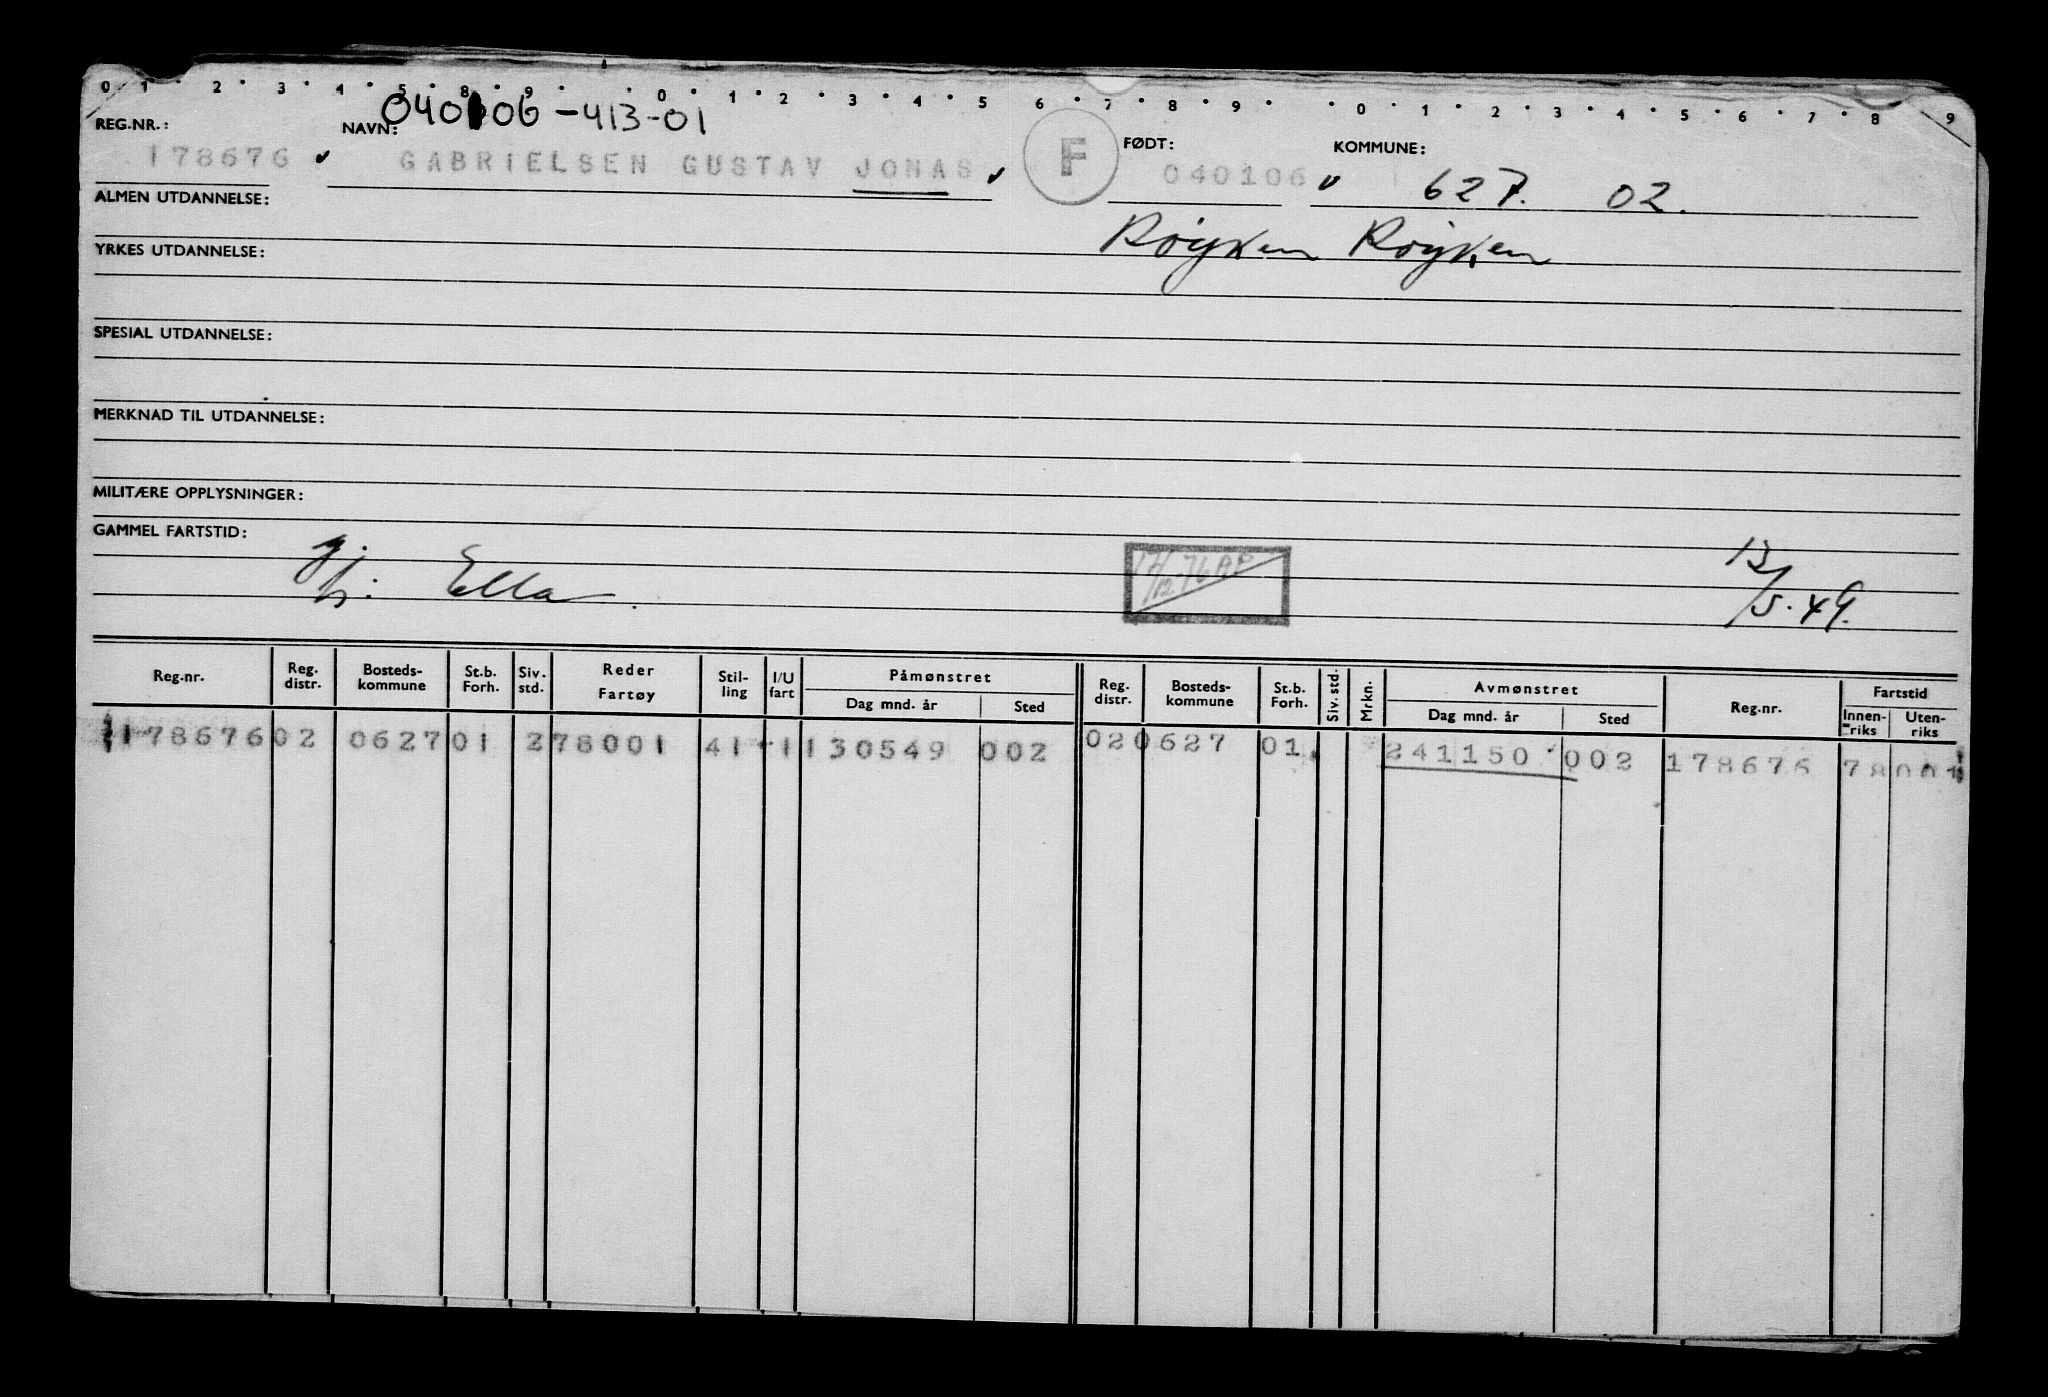 0 1 2 3 4 5 8 9 0 1 2 3 4 5 6 7 8 9 0 1 2 3 4 5 6 7 8 9
040106-413-01
REG.NR.: NAVN: FØDT: KOMMUNE:
178676 GABRIELSEN GUSTAV JONAS F 040106 627. 02.
ALMEN UTDANNELSE:
Røyken Røyken
YRKES UTDANNELSE:
SPESIAL UTDANNELSE:
MERKNAD TIL UTDANNELSE:
MILITÆRE OPPLYSNINGER:
GAMMEL FARTSTID:
Ella. 17/12.76 13/5.49.
Reg.nr. Reg. distr. Bosteds-kommune St.b. Forh. Siv. std. Reder Fartøy Stil-ling I/U fart Påmønstret Dag mnd. år Sted Reg. distr. Bosteds-kommune St.b. Forh. Siv. std. Mrkn. Avmønstret Dag mnd. år Sted Reg.nr. Fartstid Innen-riks Uten-riks
178676 02 0627 01 2 78001 41 1 130549 002 02 0627 01 241150 002 178676 78001